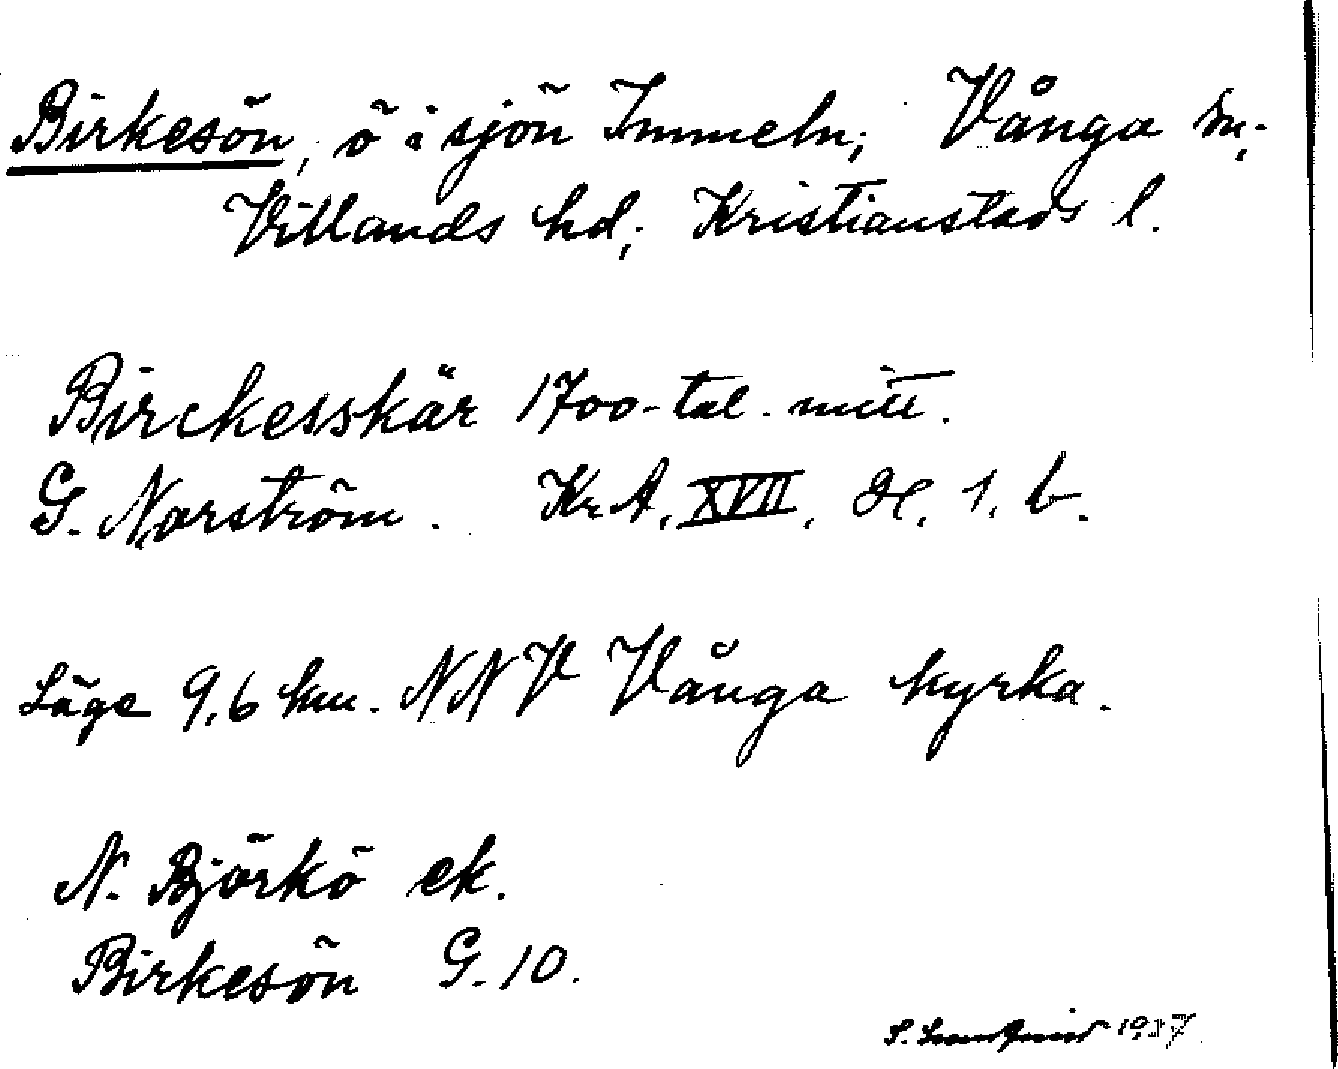 Birkesön, ö i sjön Immeln; Vånga sn;
Villands hd; Kristianstads l.
Birckesskär 1700-tal. mitt.
G. Norström. Kr A. XVII. H. 1. b.
Läge 9,6 km. NNV Vånga kyrka.
N. Björkö ek.
Birkesön G. 10.
S. 1937